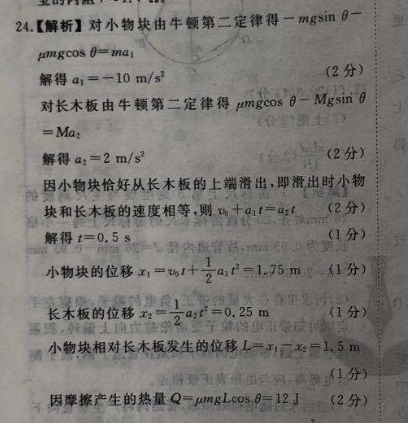 24.【解析】对小物块由牛顿第二定律得－mgsin θ－
μmgcos θ=ma₁
解得 a₁=－10 m/s² (2分)
对长木板由牛顿第二定律得 μmgcos θ－Mgsin θ
=Ma₂
解得 a₂=2 m/s² (2分)
因小物块恰好从长木板的上端滑出,即滑出时小物
块和长木板的速度相等,则 v₀+a₁t=a₂t (2分)
解得 t=0.5 s (1分)
小物块的位移 x₁=v₀t+\frac{1}{2}a₁t²=1.75 m (1分)
长木板的位移 x₂=\frac{1}{2}a₂t²=0.25 m (1分)
小物块相对长木板发生的位移 L=x₁－x₂=1.5 m
(1分)
因摩擦产生的热量 Q=μmgLcos θ=12 J (2分)